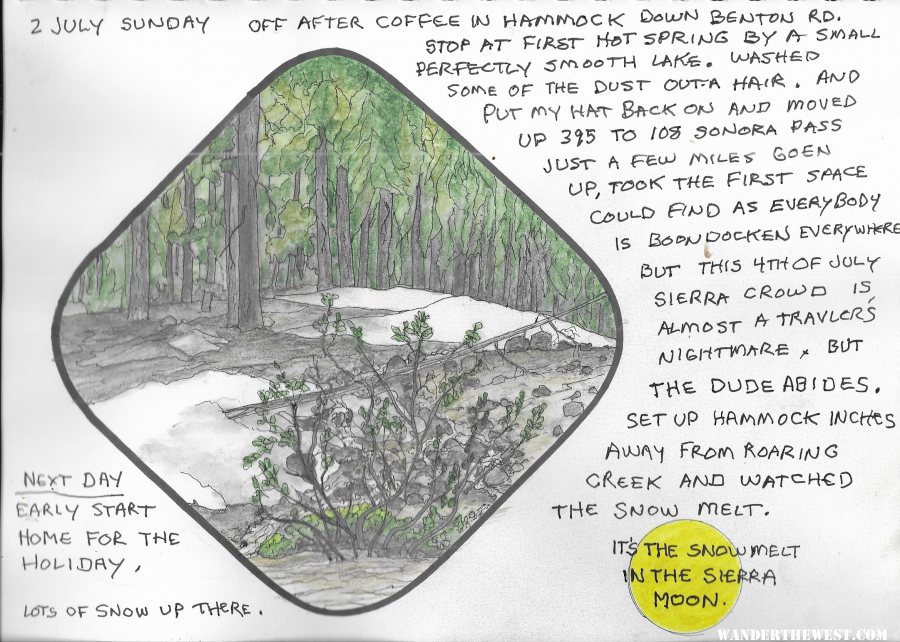 2 JULY SUNDAY OFF AFTER COFFEE IN HAMMOCK DOWN BENTON RD.
STOP AT FIRST HOT SPRING BY A SMALL
PERFECTLY SMOOTH LAKE. WASHED
SOME OF THE DUST OUTA HAIR. AND
PUT MY HAT BACK ON AND MOVED
UP 395 TO 108 SONORA PASS
JUST A FEW MILES GOEN
UP, TOOK THE FIRST SPACE
COULD FIND AS EVERYBODY
IS BOONDOCKEN EVERYWHERE
BUT THIS 4TH OF JULY
SIERRA CROWD IS
ALMOST A TRAVLER'S
NIGHTMARE, BUT
THE DUDE ABIDES.
SET UP HAMMOCK INCHES
AWAY FROM ROARING
CREEK AND WATCHED
THE SNOW MELT.
IT'S THE SNOWMELT
IN THE SIERRA
MOON.
NEXT DAY
EARLY START
HOME FOR THE
HOLIDAY,
LOTS OF SNOW UP THERE.
WANDERTHEWEST.COM